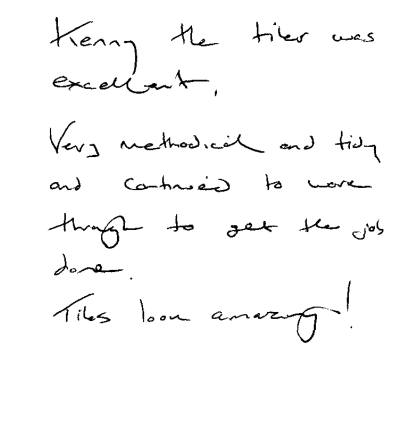 Kenny the tiler was
excellent.
Very methodical and tidy
and continued to work
through to get the job
done.
Tiles look amazing!